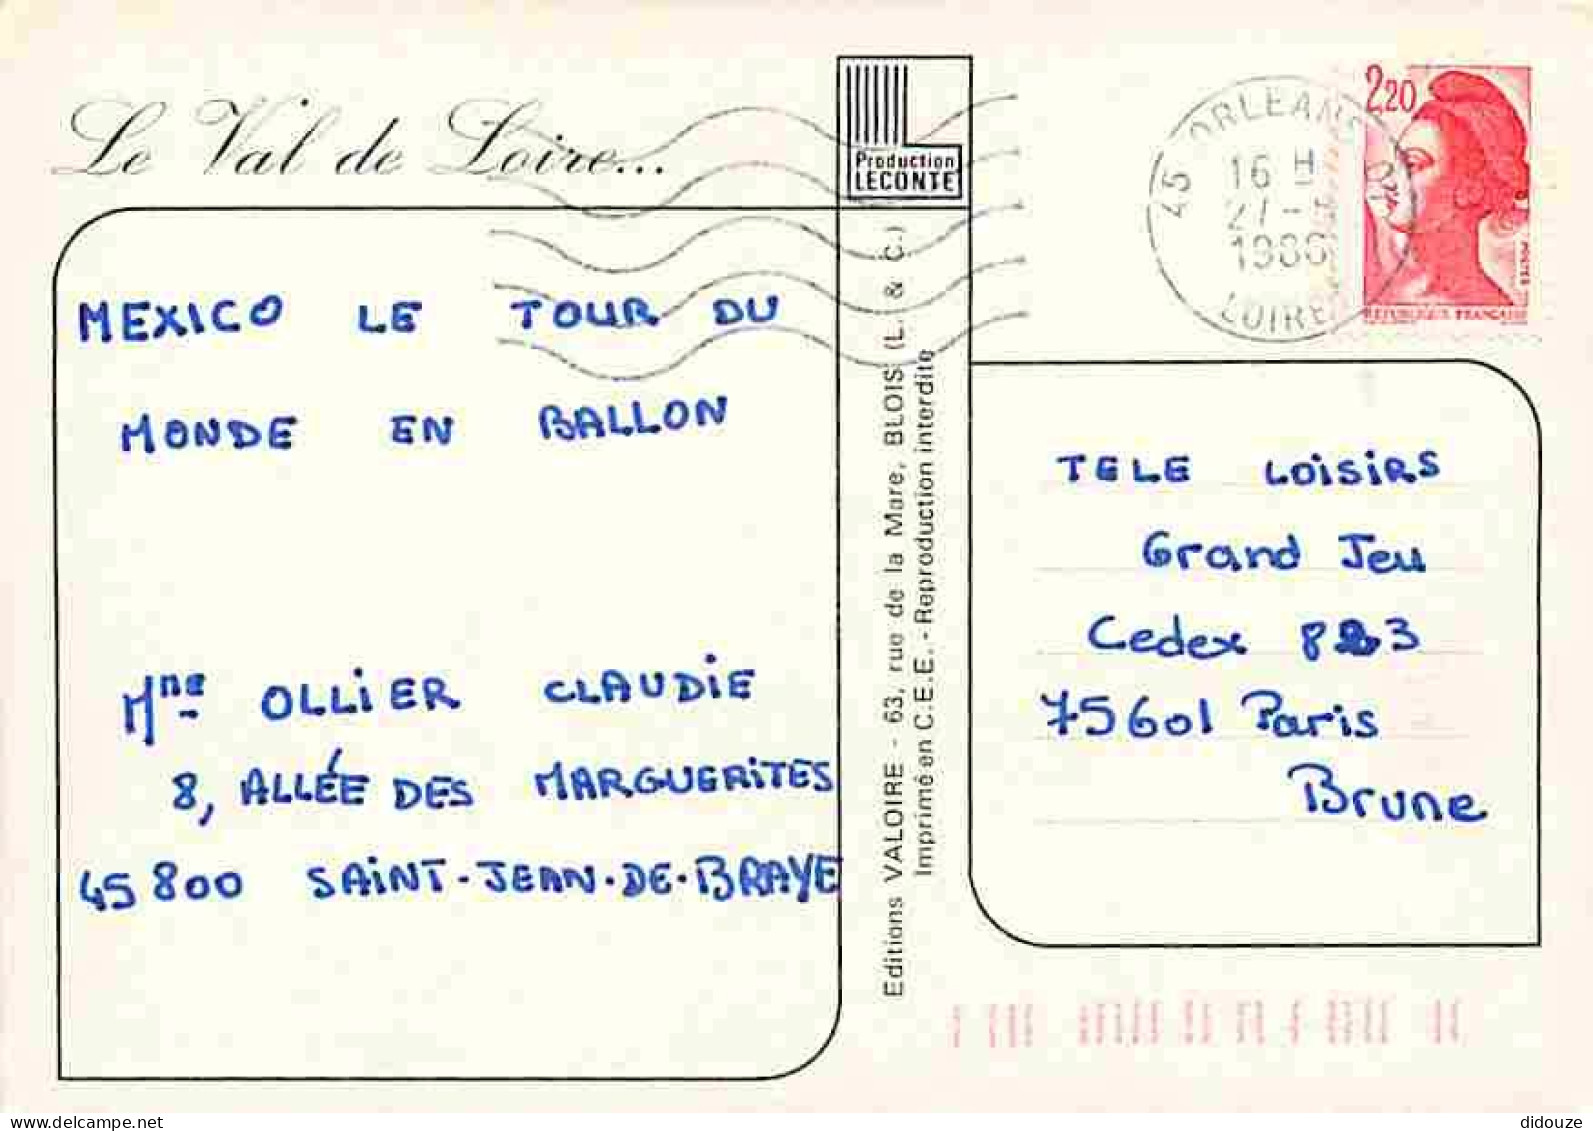 Le Val de Loire...
Production
LECONTE
45 ORLEANS
16 H
27 -
LOIRE
2,20
REPUBLIQUE FRANÇAISE
MEXICO LE TOUR DU
MONDE EN BALLON
Mme OLLIER CLAUDIE
8, ALLÉE DES MARGUERITES
45800 SAINT-JEAN-DE-BRAYE
Editions VALOIRE - 63, rue de la Mare, BLOIS (L. & C.)
Imprimé en C.E.E. - Reproduction interdite
TELE LOISIRS
Grand Jeu
Cedex 823
75601 Paris
Brune
delcampe.net
didouze